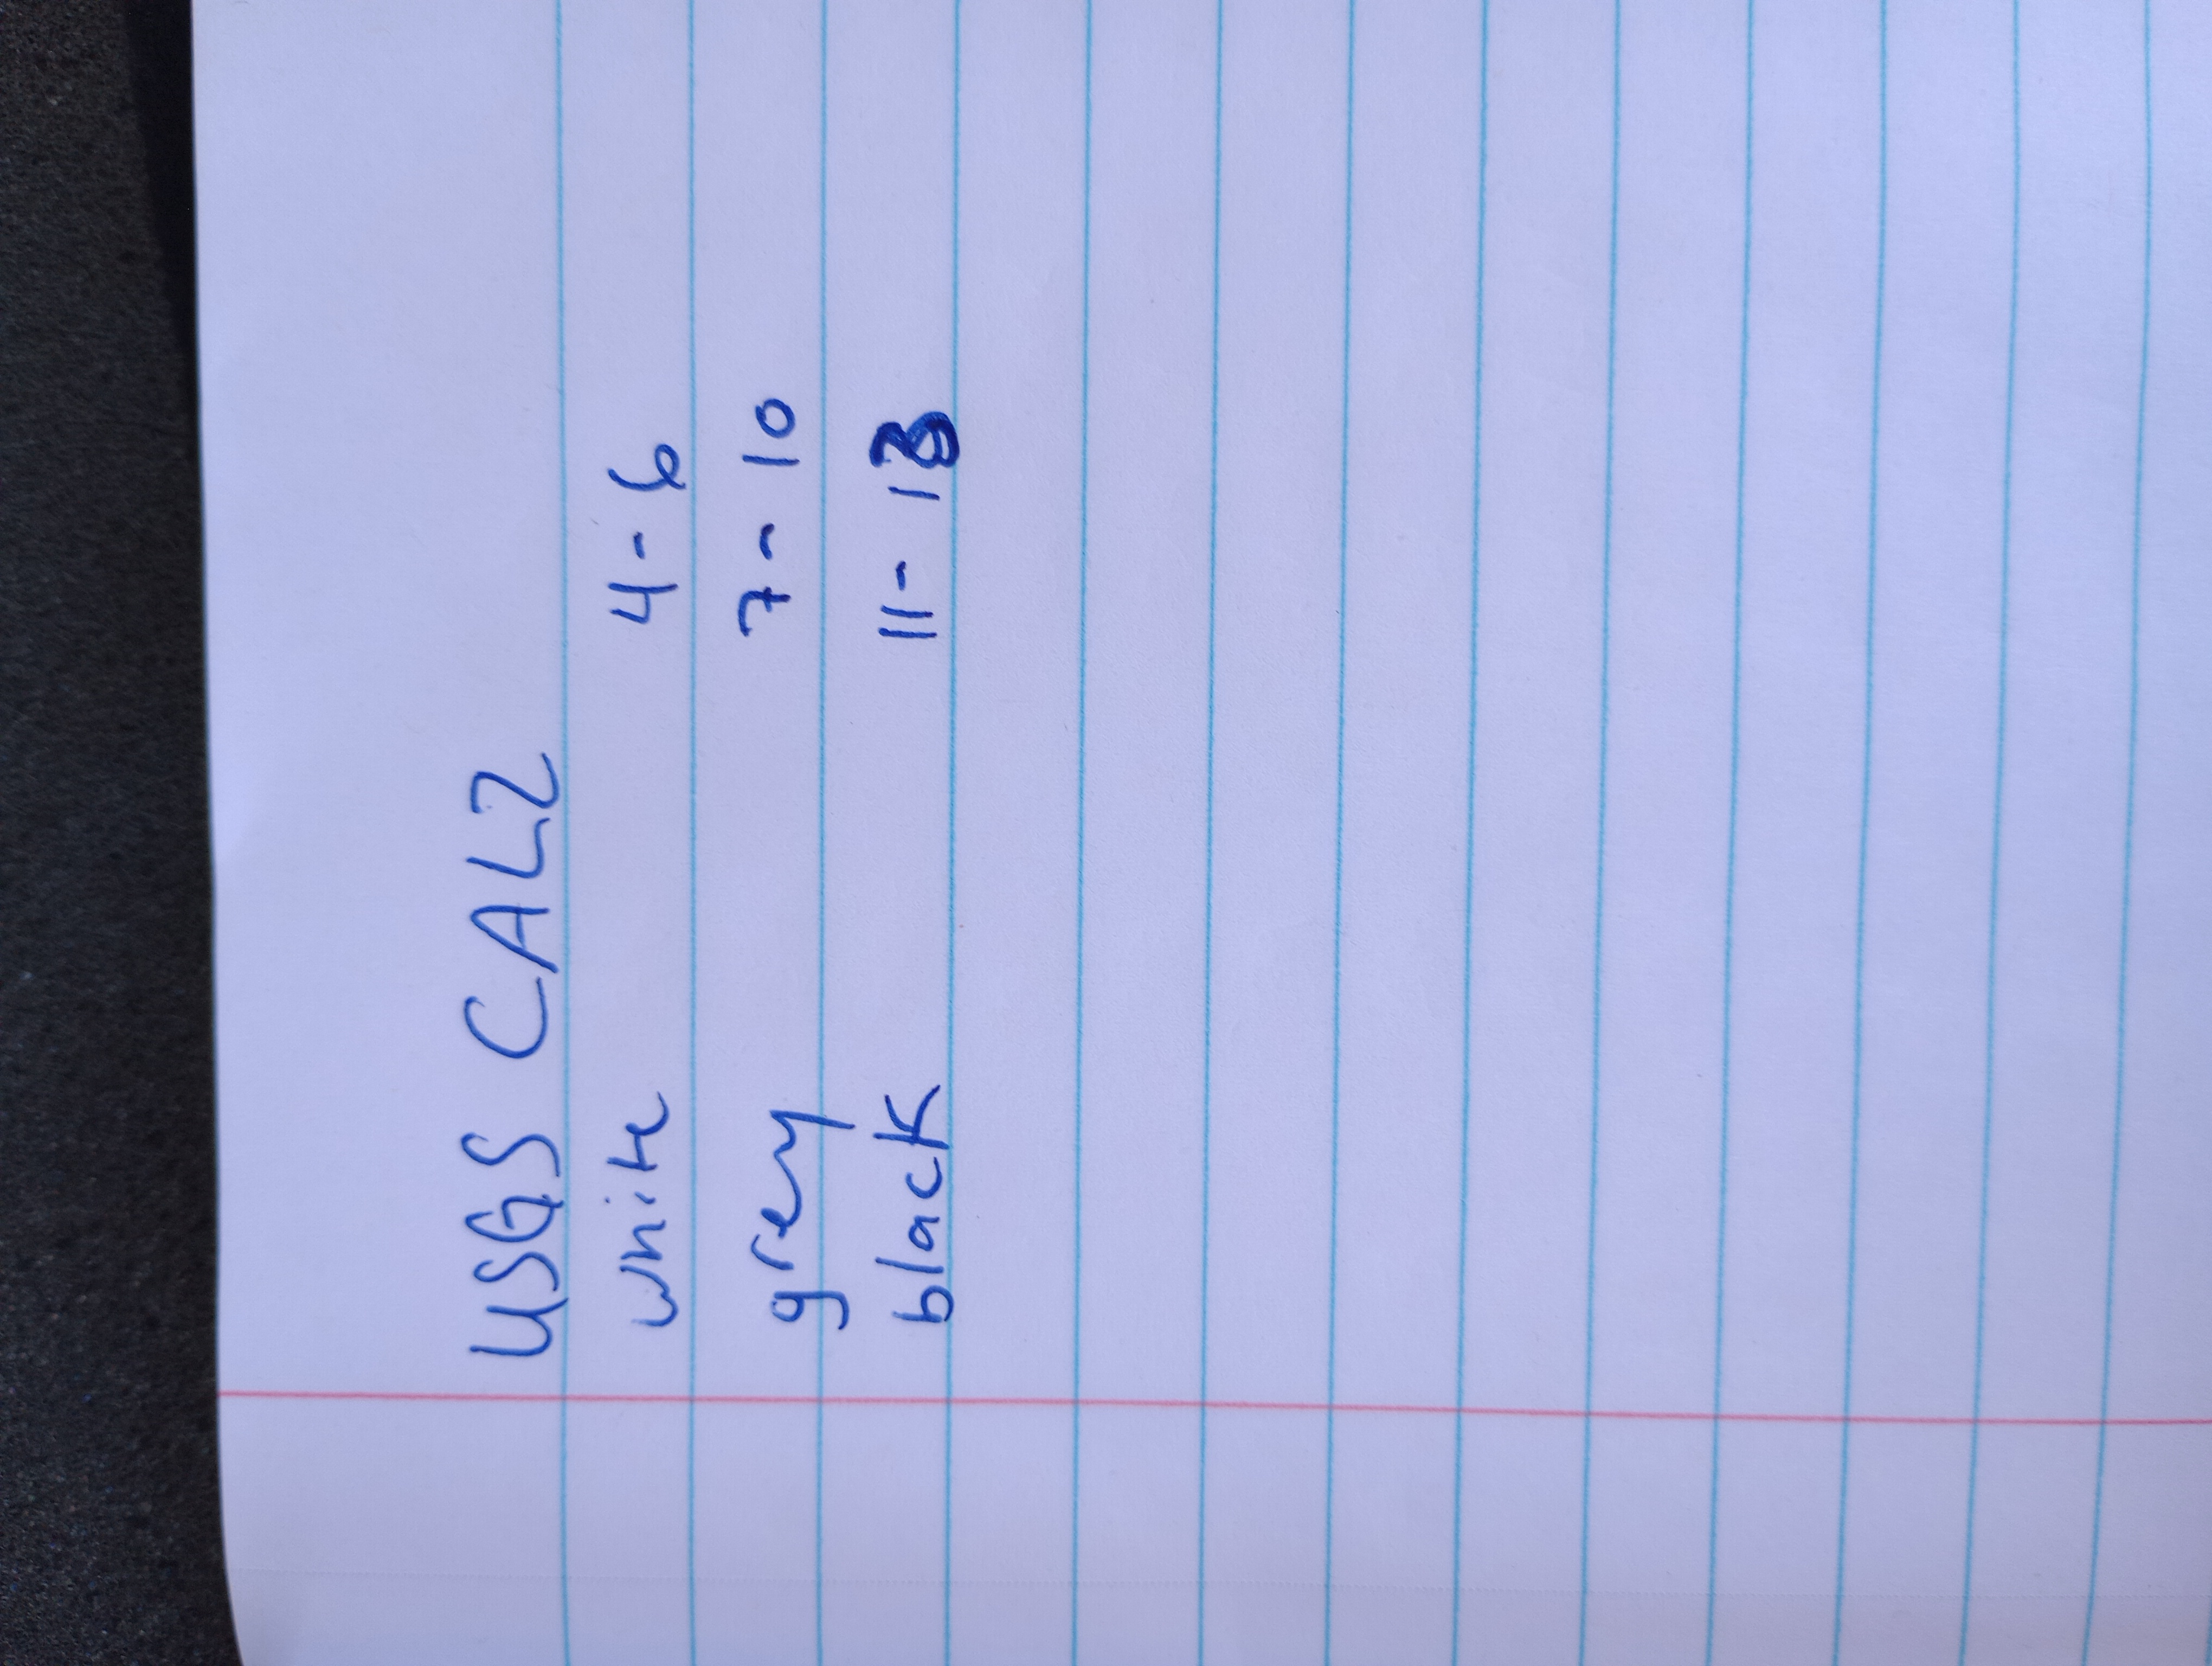 USGS CAL2
white 4-6
grey 7-10
black 11-18